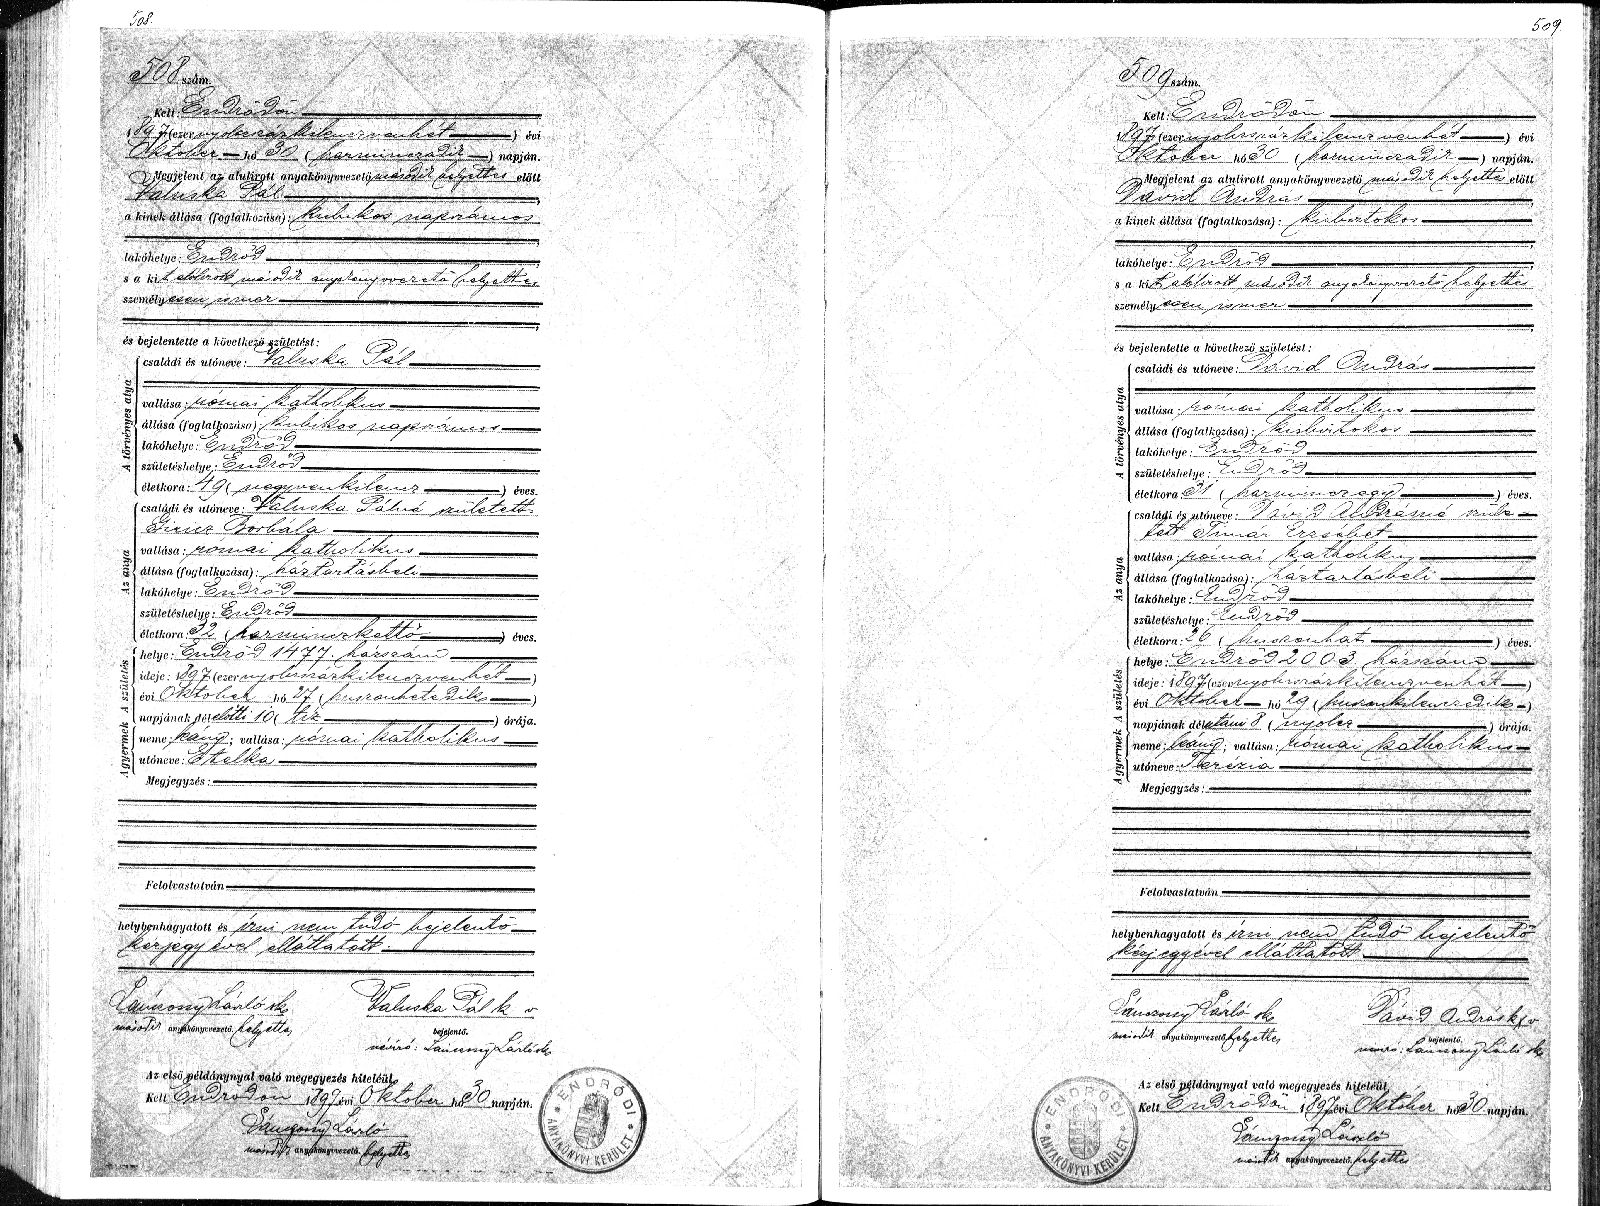 508.
508 szám.
Kelt: Endrődön
1897 (ezernyolcszázkilenczvenhét) évi
Október hó 30 (harminczadik) napján.
Megjelent az alulirott anyakönyvvezető második helyettes előtt
Valuska Pál
a kinek állása (foglalkozása): kubikos napszámos
lakóhelye: Endrőd
s a kit alólirott második anyakönyvvezető helyettes
személyesen ismer
és bejelentette a következő születést:
A törvényes atya
családi és utóneve: Valuska Pál
vallása: római katholikus
állása (foglalkozása): kubikos napszámos
lakóhelye: Endrőd
születéshelye: Endrőd
életkora: 49 (negyvenkilencz) éves.
Az anya
családi és utóneve: Valuska Pálné született
Borbála
vallása: római katholikus
állása (foglalkozása): háztartásbeli
lakóhelye: Endrőd
születéshelye: Endrőd
életkora: 32 (harminczkettő) éves.
A születés
helye: Endrőd 1477. házszám
ideje: 1897 (ezernyolcszázkilenczvenhét)
évi Október hó 27 (huszonhetedik)
napjának délelőtti 10 (tíz) órája.
A gyermek
neme: leány; vallása: római katholikus
utóneve: Etelka
Megjegyzés:
Felolvastatván
helybenhagyatott és írni nem tudó bejelentő
kézjegyével elláttatott.
Lánczony László sk. Valuska Pál k v
második anyakönyvvezető helyettes bejelentő.
névíró: Lánczony László sk
Az első példánynyal való megegyezés hiteléül,
Kelt Endrődön 1897 évi Október hó 30 napján.
Lánczony László
második anyakönyvvezető. helyettes
ENDRŐDI ANYAKÖNYVI KERÜLET
509
509 szám.
Kelt: Endrődön
1897 (ezernyolcszázkilenczvenhét) évi
Október hó 30 (harminczadik) napján.
Megjelent az alulirott anyakönyvvezető második helyettes előtt
Dávid András
a kinek állása (foglalkozása): kisbirtokos
lakóhelye: Endrőd
s a kit alólirott második anyakönyvvezető helyettes
személyesen ismer
és bejelentette a következő születést:
A törvényes atya
családi és utóneve: Dávid András
vallása: római katholikus
állása (foglalkozása): kisbirtokos
lakóhelye: Endrőd
születéshelye: Endrőd
életkora: 31 (harminczegy) éves.
Az anya
családi és utóneve: Dávid Andrásné szüle-
tett Timár Erzsébet
vallása: római katholikus
állása (foglalkozása): háztartásbeli
lakóhelye: Endrőd
születéshelye: Endrőd
életkora: 26 (huszonhat) éves.
A születés
helye: Endrőd 2003. házszám
ideje: 1897 (ezernyolcszázkilenczvenhét)
évi Október hó 29 (huszonkilenczedik)
napjának délutáni 8 (nyolcz) órája.
A gyermek
neme: leány; vallása: római katholikus
utóneve: Terézia
Megjegyzés:
Felolvastatván
helybenhagyatott és írni nem tudó bejelentő
kézjegyével elláttatott
Lánczony László sk Dávid András k v
második anyakönyvvezető helyettes bejelentő.
névíró: Lánczony László sk
Az első példánynyal való megegyezés hiteléül,
Kelt Endrődön 1897 évi Október hó 30 napján.
Lánczony László
második anyakönyvvezető. helyettes
ENDRŐDI ANYAKÖNYVI KERÜLET